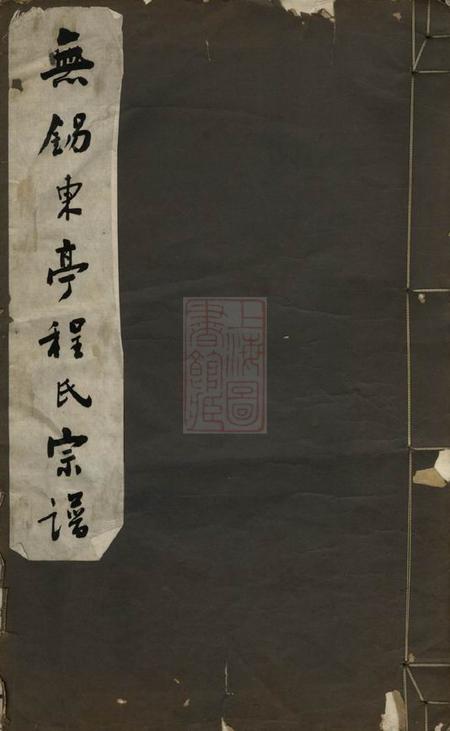 無錫東亭程氏宗譜
上海圖
書館藏